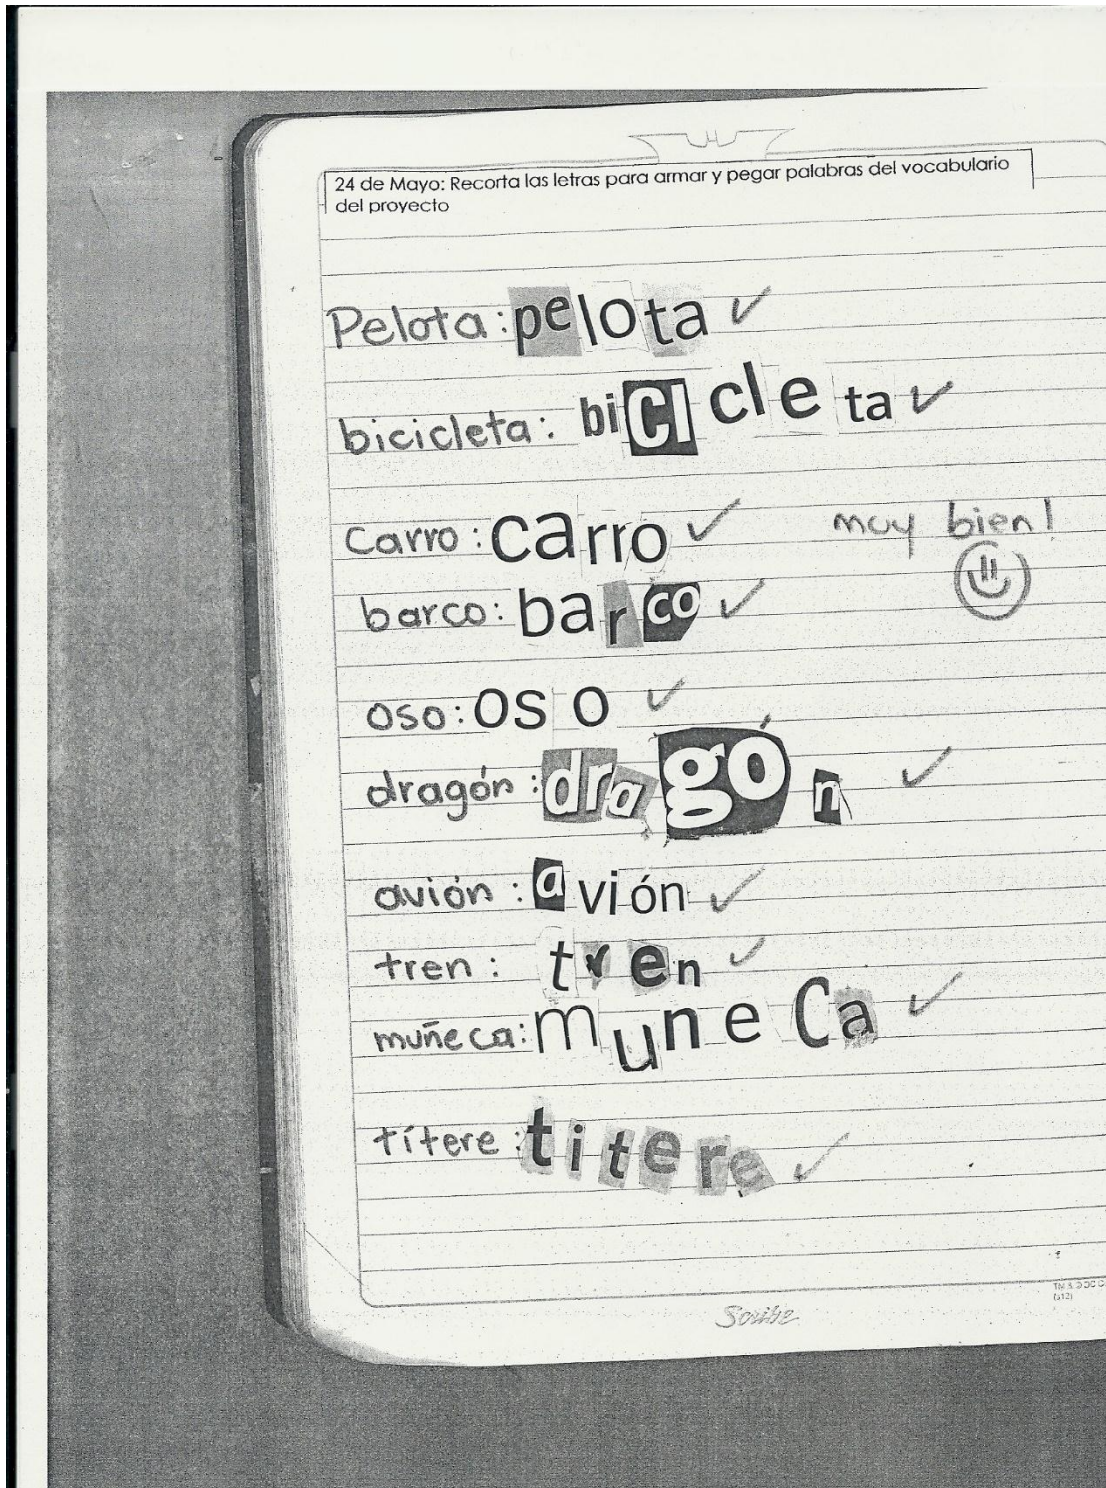 24 de Mayo: Recorta las letras para armar y pegar palabras del vocabulario
del proyecto
Pelota: pelota
bicicleta: biCIcleta
Carro: carro
muy bien!
barco: barco
oso: oso
dragón: dragón
avión: avión
tren: tren
muñeca: muneCa
títere: titere
Scribe